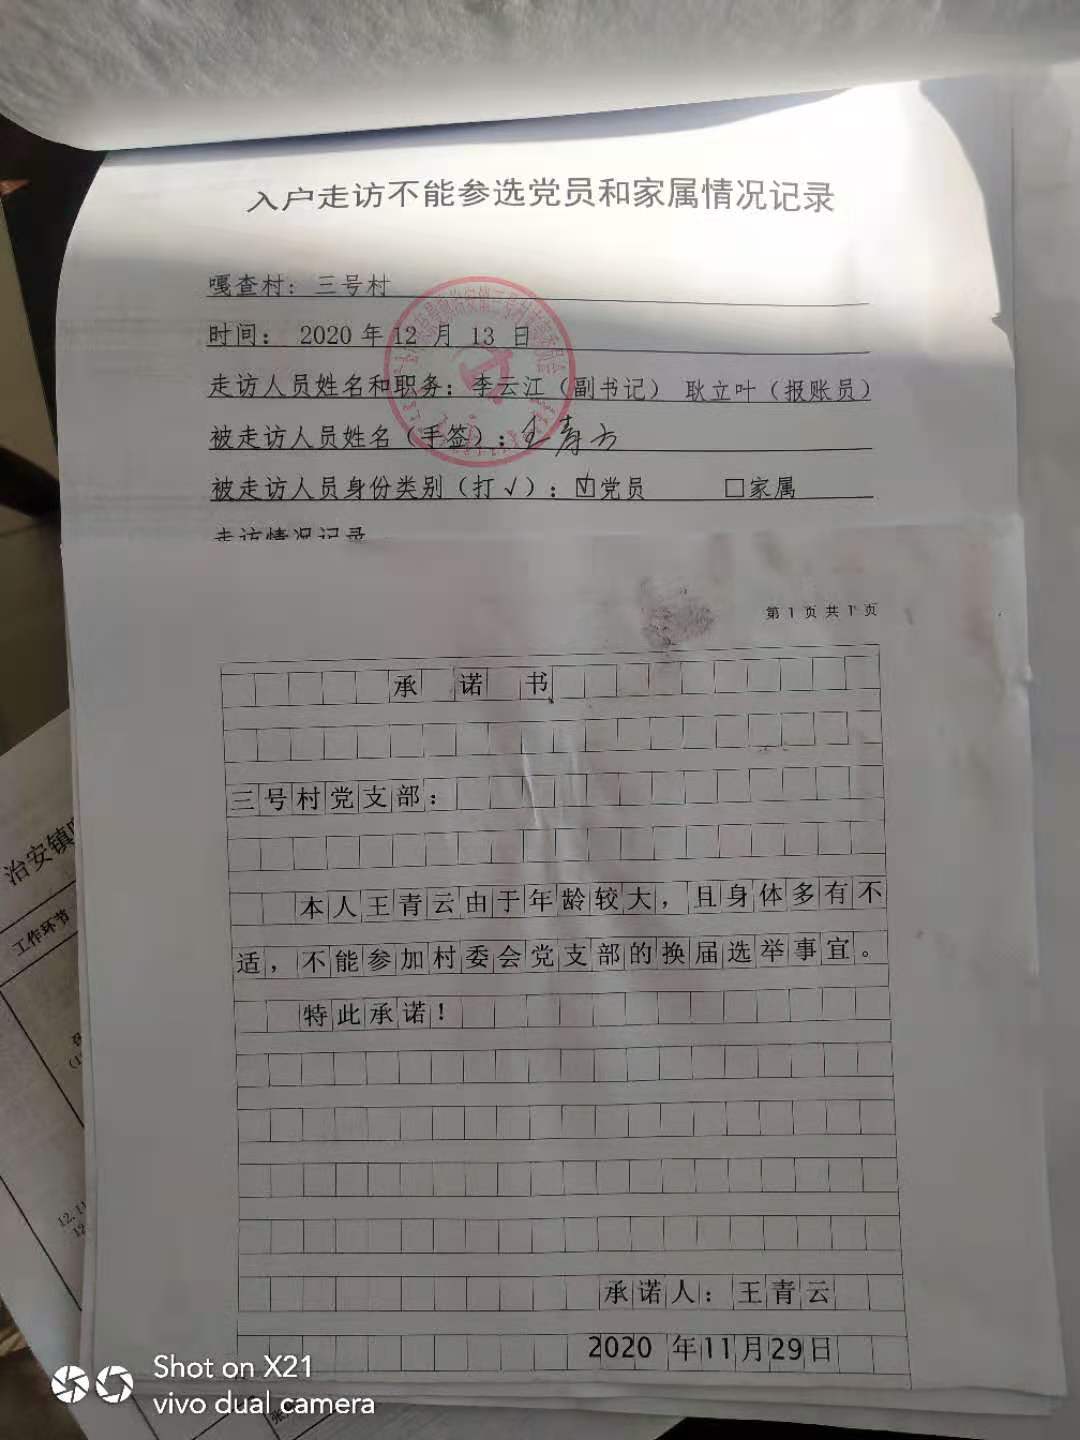 入户走访不能参选党员和家属情况记录
嘎查村：三号村
时间： 2020 年 12 月 13 日
走访人员姓名和职务：李云江（副书记） 耿立叶（报账员）
被走访人员姓名（手签）：王青云
被走访人员身份类别（打√）：☑党员 □家属
走访情况记录
第 1 页 共 1 页
承诺书
三号村党支部：
本人王青云由于年龄较大，且身体多有不
适，不能参加村委会党支部的换届选举事宜。
特此承诺！
承诺人：王青云
2020 年11月29日
治安镇
工作环节
Shot on X21
vivo dual camera